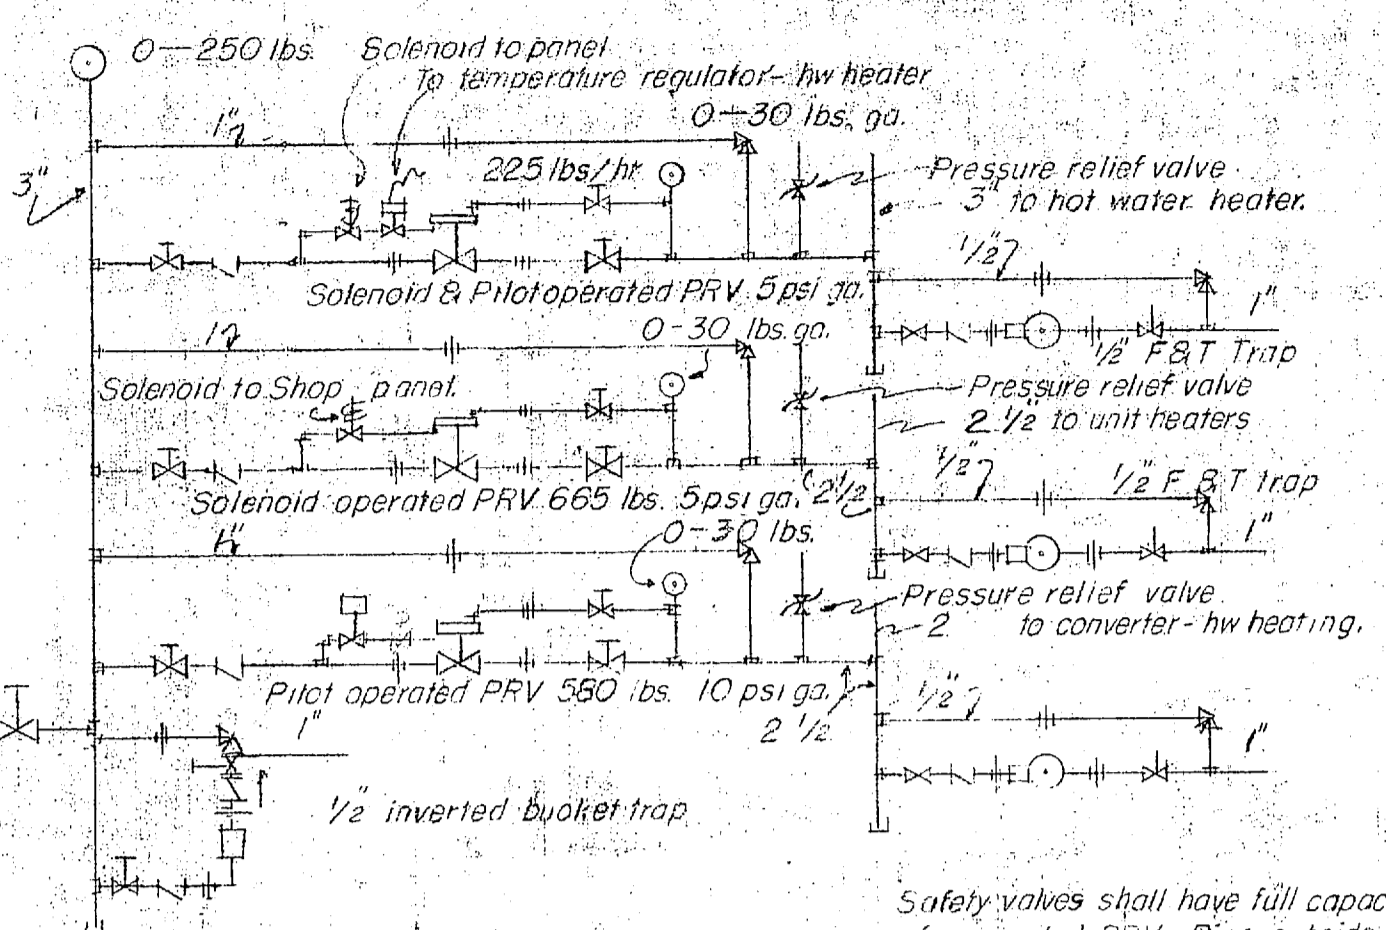 0-250 lbs.
Solenoid to panel
To temperature regulator- hw heater
0-30 lbs. ga.
1"
225 lbs/hr
3"
Pressure relief valve
3" to hot water heater.
1/2"
1"
Solenoid & Pilot operated PRV 5 psi ga.
0-30 lbs. ga.
1/2" F & T Trap
1"
Solenoid to Shop panel.
Pressure relief valve
2 1/2" to unit heaters
1/2"
1/2" F & T trap
Solenoid operated PRV 665 lbs. 5 psi ga.
2 1/2
0-30 lbs.
1"
Pressure relief valve
2 to converter - hw heating.
Pilot operated PRV 580 lbs. 10 psi ga.
1/2"
2 1/2
1"
1"
1/2" inverted bucket trap
Safety valves shall have full capac